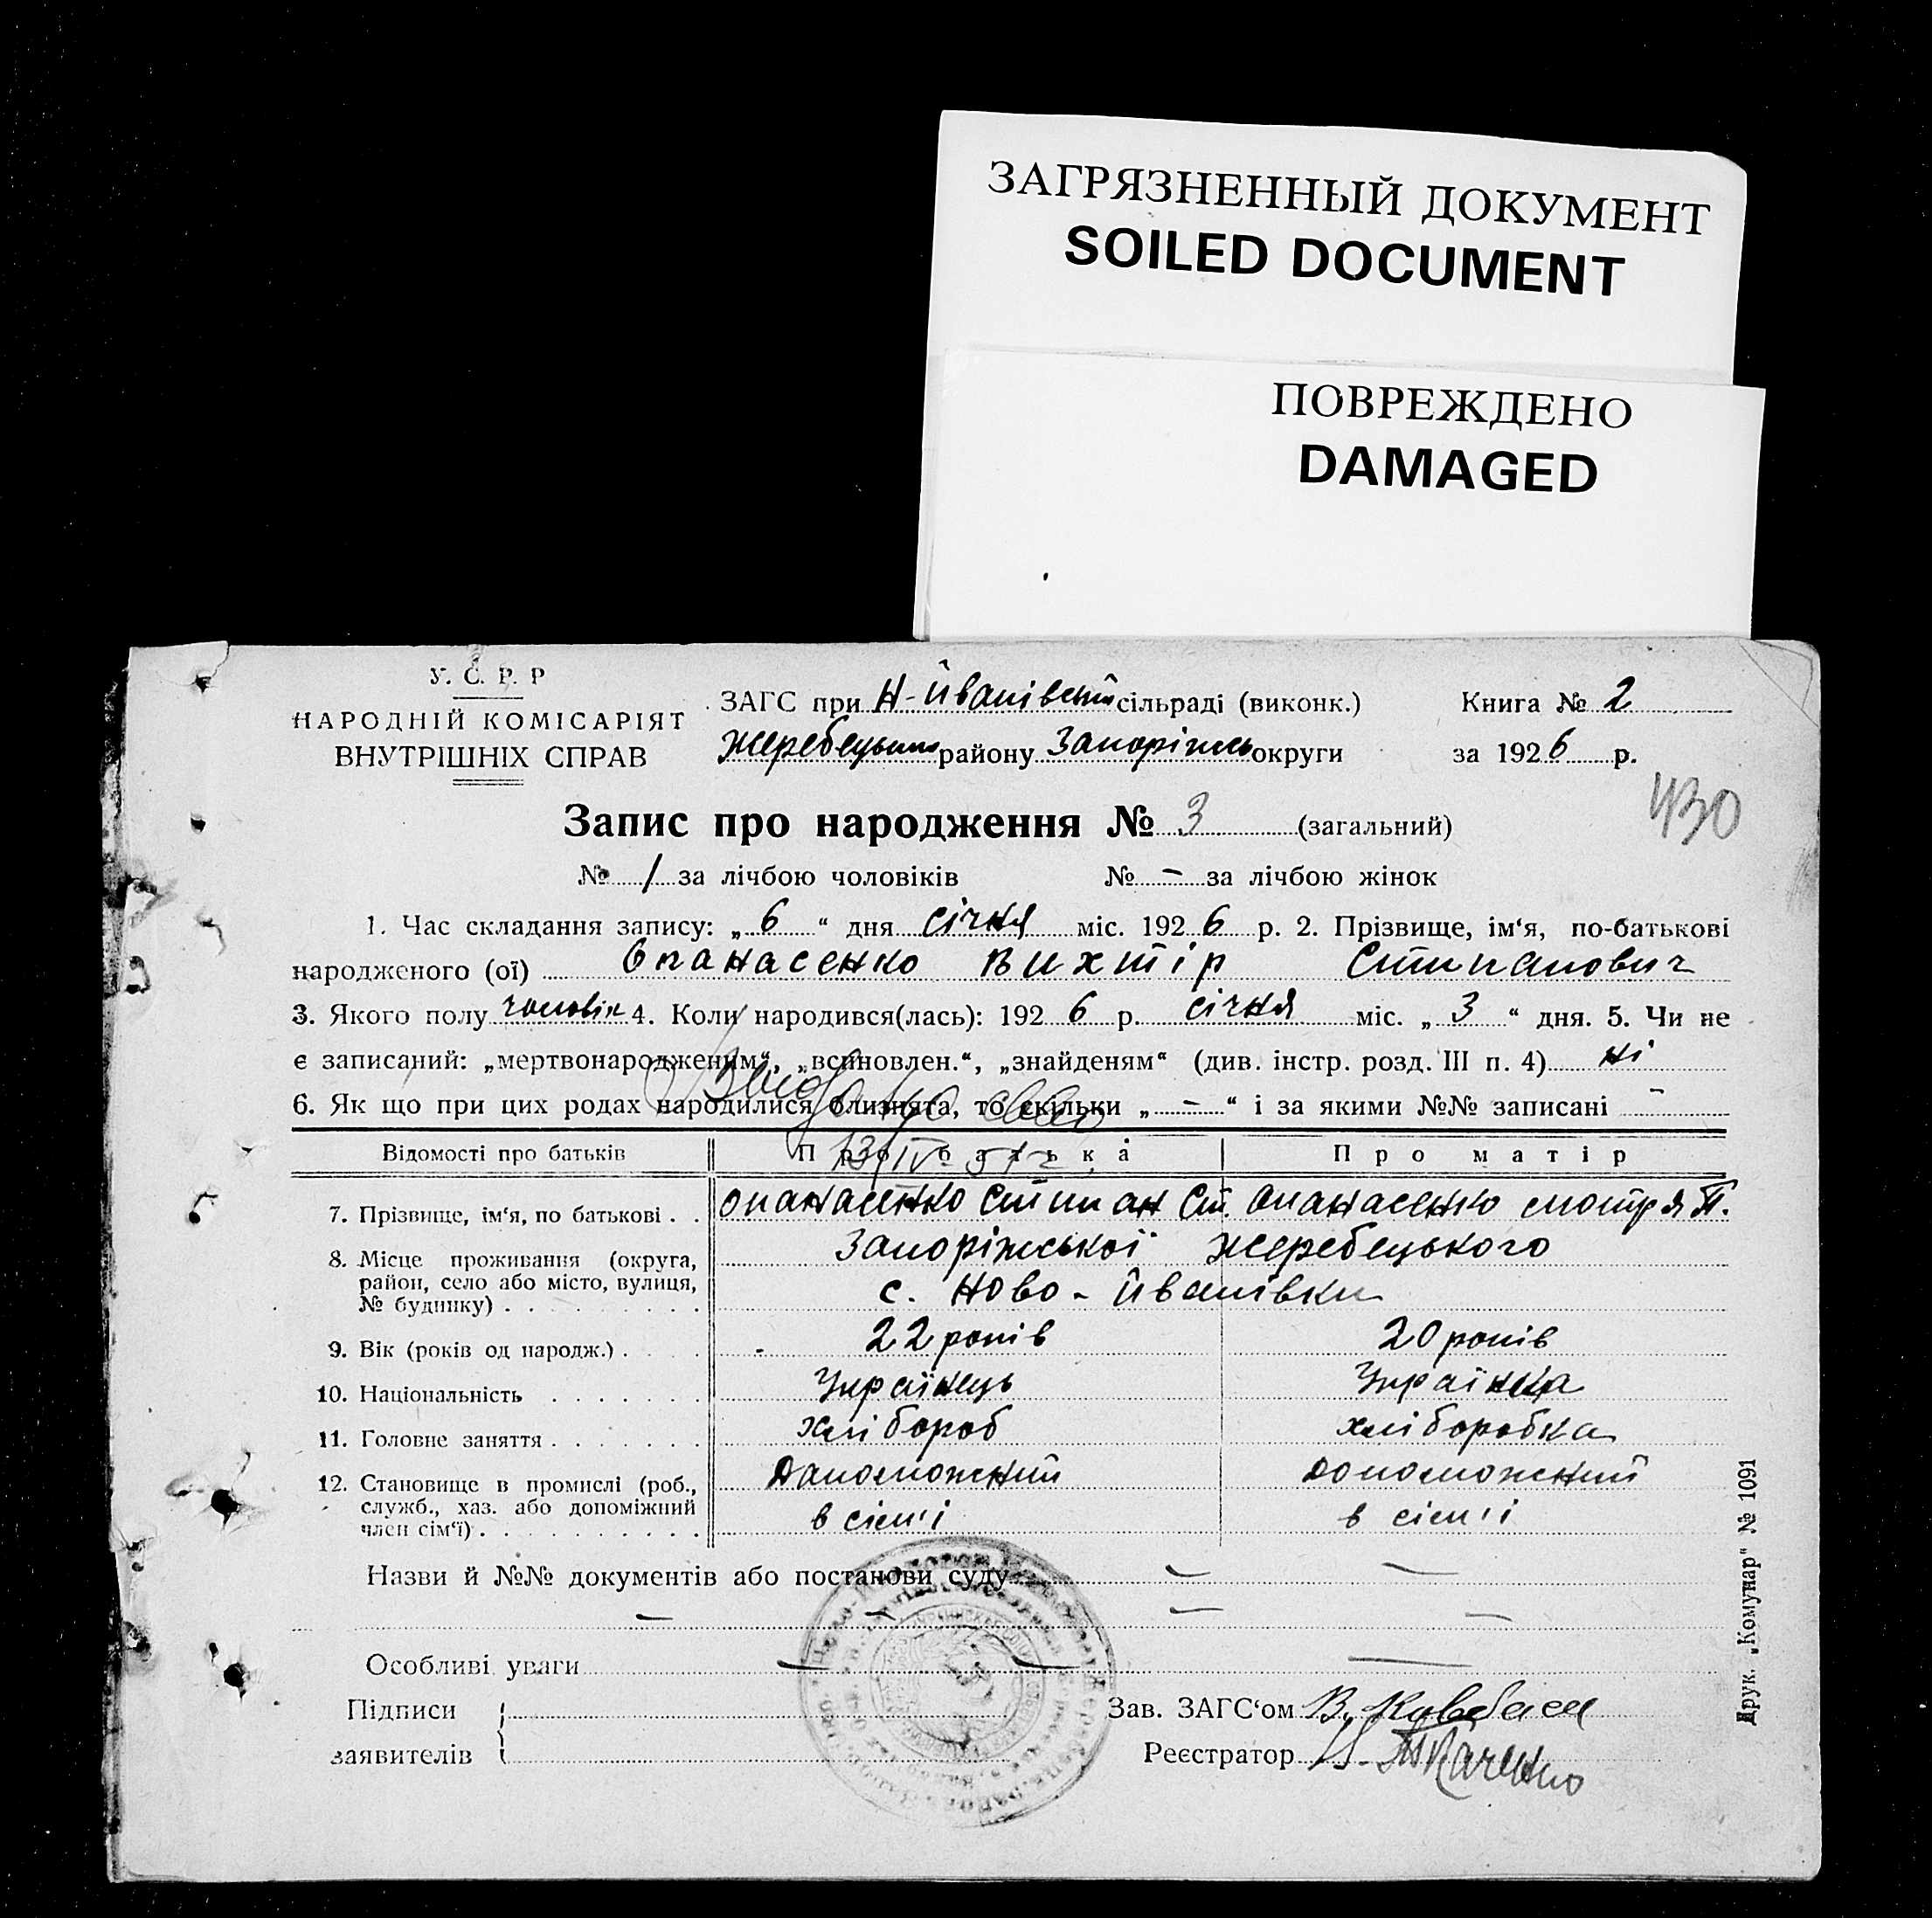 ЗАГРЯЗНЕННЫЙ ДОКУМЕНТ
SOILED DOCUMENT
ПОВРЕЖДЕНО
DAMAGED
У. С. Р. Р
НАРОДНІЙ КОМІСАРІЯТ
ВНУТРІШНІХ СПРАВ
ЗАГС при Н-Йванівській сільраді (виконк.)
Жеребецьким району Запоріжсь округи
Книга № 2
за 1926 р.
430
Запис про народження № 3 (загальний)
№ 1 за лічбою чоловіків № - за лічбою жінок
1. Час складання запису: „ 6 “ дня січня міс. 1926 р. 2. Прізвище, ім‘я, по-батькові
народженого (ої) Опанасенко Вихтір Стипанович
3. Якого полу чоловік 4. Коли народився(лась): 1926 р. січня міс. „ 3 “ дня. 5. Чи не
є записаний: „мертвонародженим“, „всиновлен.“, „знайденям“ (див. інстр. розд. III п. 4) ні
6. Як що при цих родах народилися близнята, то скільки „ - “ і за якими №№ записані -
Відомості про батьків Про батька Про матір
7. Прізвище, ім‘я, по батькові . . Опанасенко Стипан Ст. Опанасенко Мотря П.
8. Місце проживання (округа, район, село або місто, вулиця, № будинку) . . . Запоріжської Жеребецького
с. Ново-Йванівки
9. Вік (років од народж.) . . . . 22 років 20 років
10. Національність . . . . . . . Українець Українка
11. Головне заняття . . . . . . . хлібороб хліборобка
12. Становище в промислі (роб., служб., хаз. або допоміжний член сім‘ї) . . . Допоможний допоможний
в сім'ї в сім'ї
Назви й №№ документів або постанови суду - -
- - - -
Особливі уваги - - -
Підписи
заявителів
Зав. ЗАГС‘ом В.
Реєстратор Ткаченко
Друк. „Комунар“ № 1091